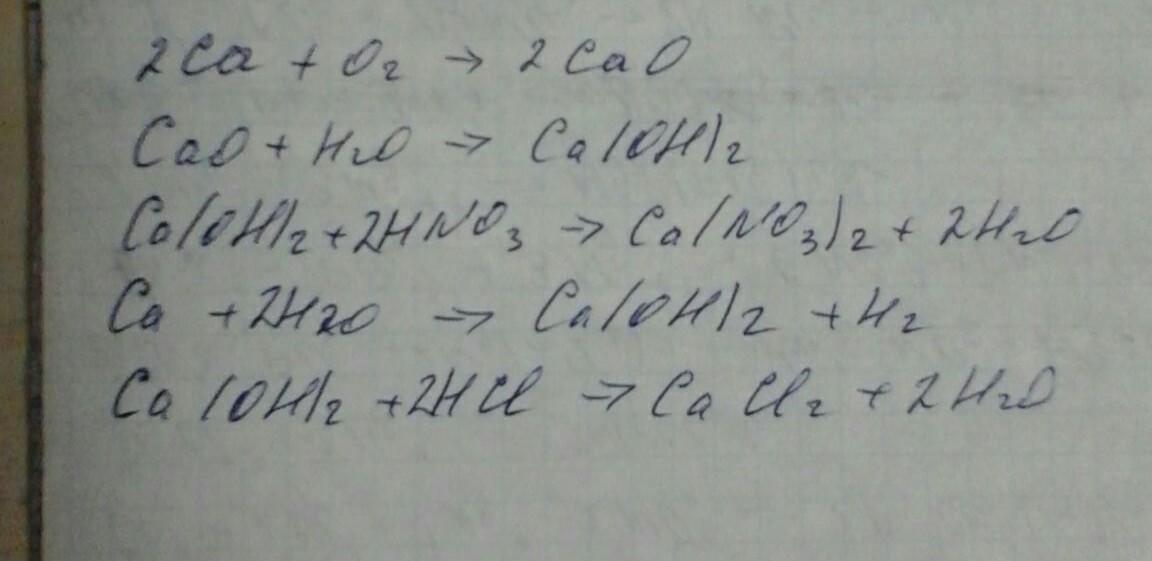 2Ca + O₂ → 2CaO
CaO + H₂O → Ca(OH)₂
Ca(OH)₂ + 2HNO₃ → Ca(NO₃)₂ + 2H₂O
Ca + 2H₂O → Ca(OH)₂ + H₂
Ca(OH)₂ + 2HCl → CaCl₂ + 2H₂O